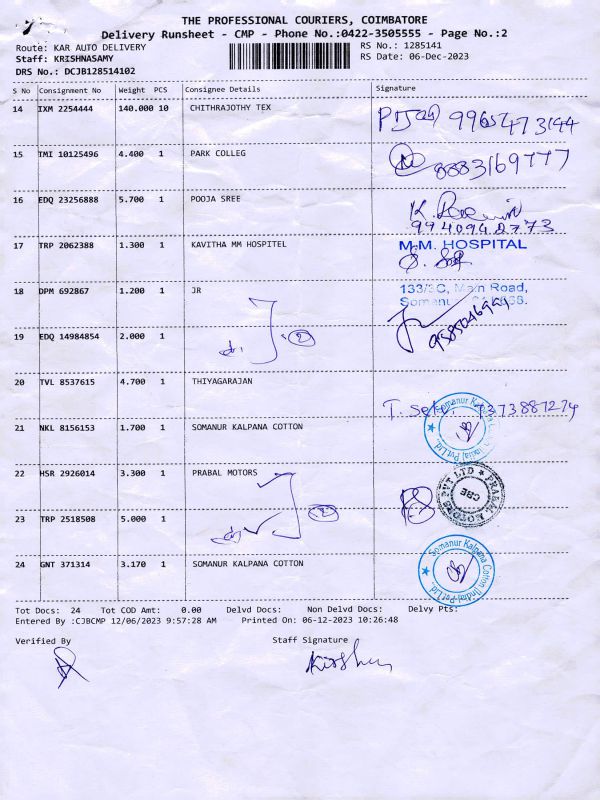 THE PROFESSIONAL COURIERS, COIMBATORE
Delivery Runsheet - CMP - Phone No.:0422-3505555 - Page No.:2
Route: KAR AUTO DELIVERY
RS No.: 1285141
Staff: KRISHNASAMY
RS Date: 06-Dec-2023
DRS No.: DCJB128514102
S No Consignment No Weight PCS Consignee Details Signature
14 IXM 2254444 140.000 10 CHITHRAJOTHY TEX
15 IMI 10125496 4.400 1 PARK COLLEG
8883169777
16 EDQ 23256888 5.700 1 POOJA SREE
K.
9940942773
17 TRP 2062388 1.300 1 KAVITHA MM HOSPITEL M.M. HOSPITAL
18 DPM 692867 1.200 1 JR 133/3C, Main Road,
19 EDQ 14984854 2.000 1
2
20 TVL 8537615 4.700 1 THIYAGARAJAN
T. 7373887274
21 NKL 8156153 1.700 1 SOMANUR KALPANA COTTON
Somanur Kalpana Cotton (India) Pvt Ltd
22 HSR 2926014 3.300 1 PRABAL MOTORS
PRABAL MOTORS PVT LTD
CBE
23 TRP 2518508 5.000 1
2
24 GNT 371314 3.170 1 SOMANUR KALPANA COTTON
Somanur Kalpana Cotton (India) Pvt Ltd
Tot Docs: 24 Tot COD Amt: 0.00 Delvd Docs: Non Delvd Docs: Delvy Pts:
Entered By :CJBCMP 12/06/2023 9:57:28 AM Printed On: 06-12-2023 10:26:48
Verified By Staff Signature